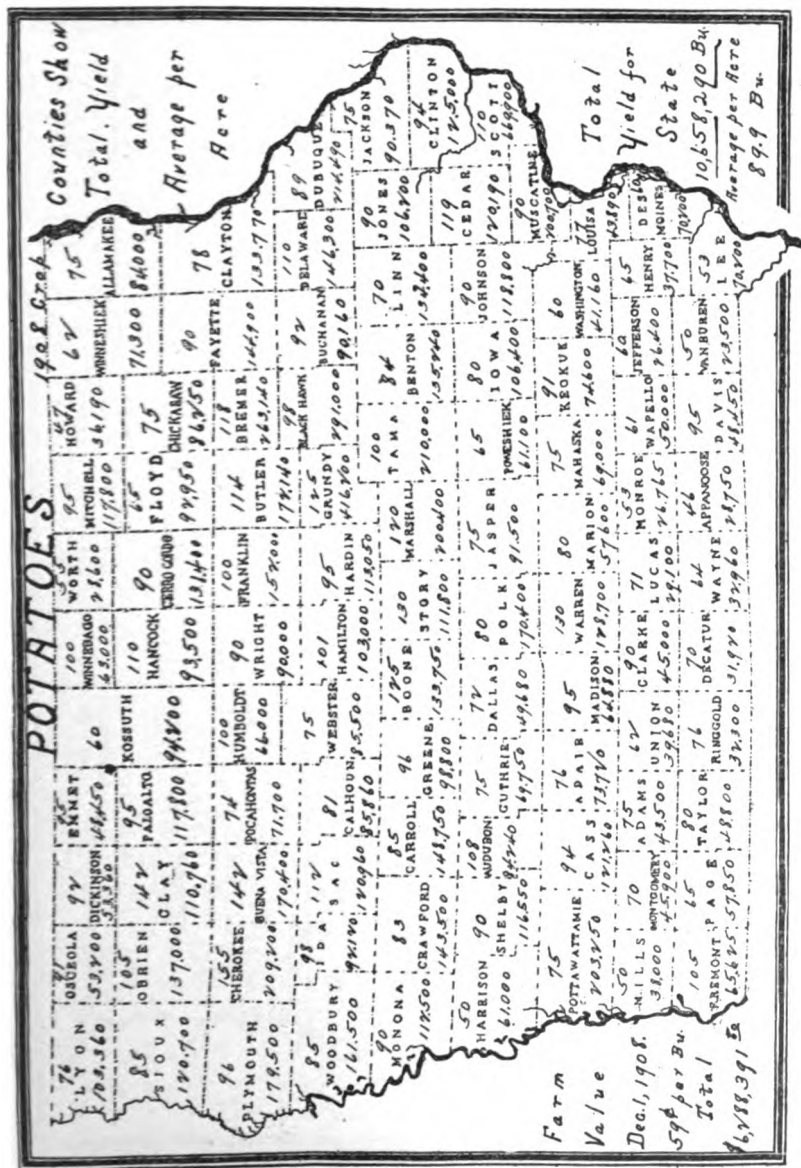 POTATOES
1908 Crop
Counties Show
Total Yield
and
Average per
Acre
76
LYON
103,360
OSCEOLA
53,200
92
DICKINSON
53,360
EMMET
48,450
100
WINNEBAGO
63,000
WORTH
28,600
95
MITCHELL
117,800
47
HOWARD
34,190
62
WINNESHIEK
71,300
75
ALLAMAKEE
84,000
85
SIOUX
120,700
105
OBRIEN
137,000
142
CLAY
110,760
95
PALO ALTO
117,800
60
KOSSUTH
94,200
110
HANCOCK
93,500
90
CERRO GORDO
131,400
65
FLOYD
92,950
75
CHICKASAW
86,250
90
FAYETTE
144,900
78
CLAYTON
133,770
96
PLYMOUTH
179,500
155
CHEROKEE
209,200
142
BUENA VISTA
170,400
74
POCAHONTAS
71,700
100
HUMBOLDT
66,000
90
WRIGHT
90,000
100
FRANKLIN
152,000
114
BUTLER
172,140
118
BREMER
263,140
85
WOODBURY
161,500
98
IDA
92,120
112
SAC
120,960
81
CALHOUN
85,860
75
WEBSTER
85,500
101
HAMILTON
103,000
95
HARDIN
113,050
125
GRUNDY
416,200
98
BLACK HAWK
291,000
92
BUCHANAN
90,160
110
DELAWARE
146,300
89
DUBUQUE
214,490
90
MONONA
112,500
83
CRAWFORD
143,500
85
CARROLL
148,750
96
GREENE
98,800
125
BOONE
133,750
130
STORY
111,800
120
MARSHALL
200,400
100
TAMA
210,000
84
BENTON
135,240
70
LINN
132,400
90
JONES
106,200
75
JACKSON
90,370
94
CLINTON
125,000
50
HARRISON
61,000
90
SHELBY
116,550
108
AUDUBON
94,240
75
GUTHRIE
69,750
72
DALLAS
49,680
80
POLK
170,400
75
JASPER
91,500
65
POWESHIEK
61,100
80
IOWA
106,400
90
JOHNSON
118,800
119
CEDAR
120,190
110
SCOTT
90
MUSCATINE
75
POTTAWATTAMIE
203,250
94
CASS
121,260
76
ADAIR
73,720
95
MADISON
64,880
130
WARREN
128,700
80
MARION
57,600
75
MAHASKA
69,000
91
KEOKUK
74,600
60
WASHINGTON
41,160
77
LOUISA
43,890
50
MILLS
38,000
70
MONTGOMERY
45,900
75
ADAMS
43,500
62
UNION
39,680
90
CLARKE
45,000
71
LUCAS
29,100
53
MONROE
26,765
61
WAPELLO
50,000
60
JEFFERSON
26,400
65
HENRY
37,700
DES MOINES
70,200
105
FREMONT
65,625
65
PAGE
57,850
80
TAYLOR
48,800
76
RINGGOLD
32,300
70
DECATUR
31,920
64
WAYNE
32,960
46
APPANOOSE
28,750
95
DAVIS
48,450
50
VAN BUREN
23,500
53
LEE
70,200
Farm
Value
Dec. 1, 1908.
59¢ per Bu.
Total
$6,288,391
Total
Yield for
State
10,658,290 Bu.
Average per Acre
89.9 Bu.